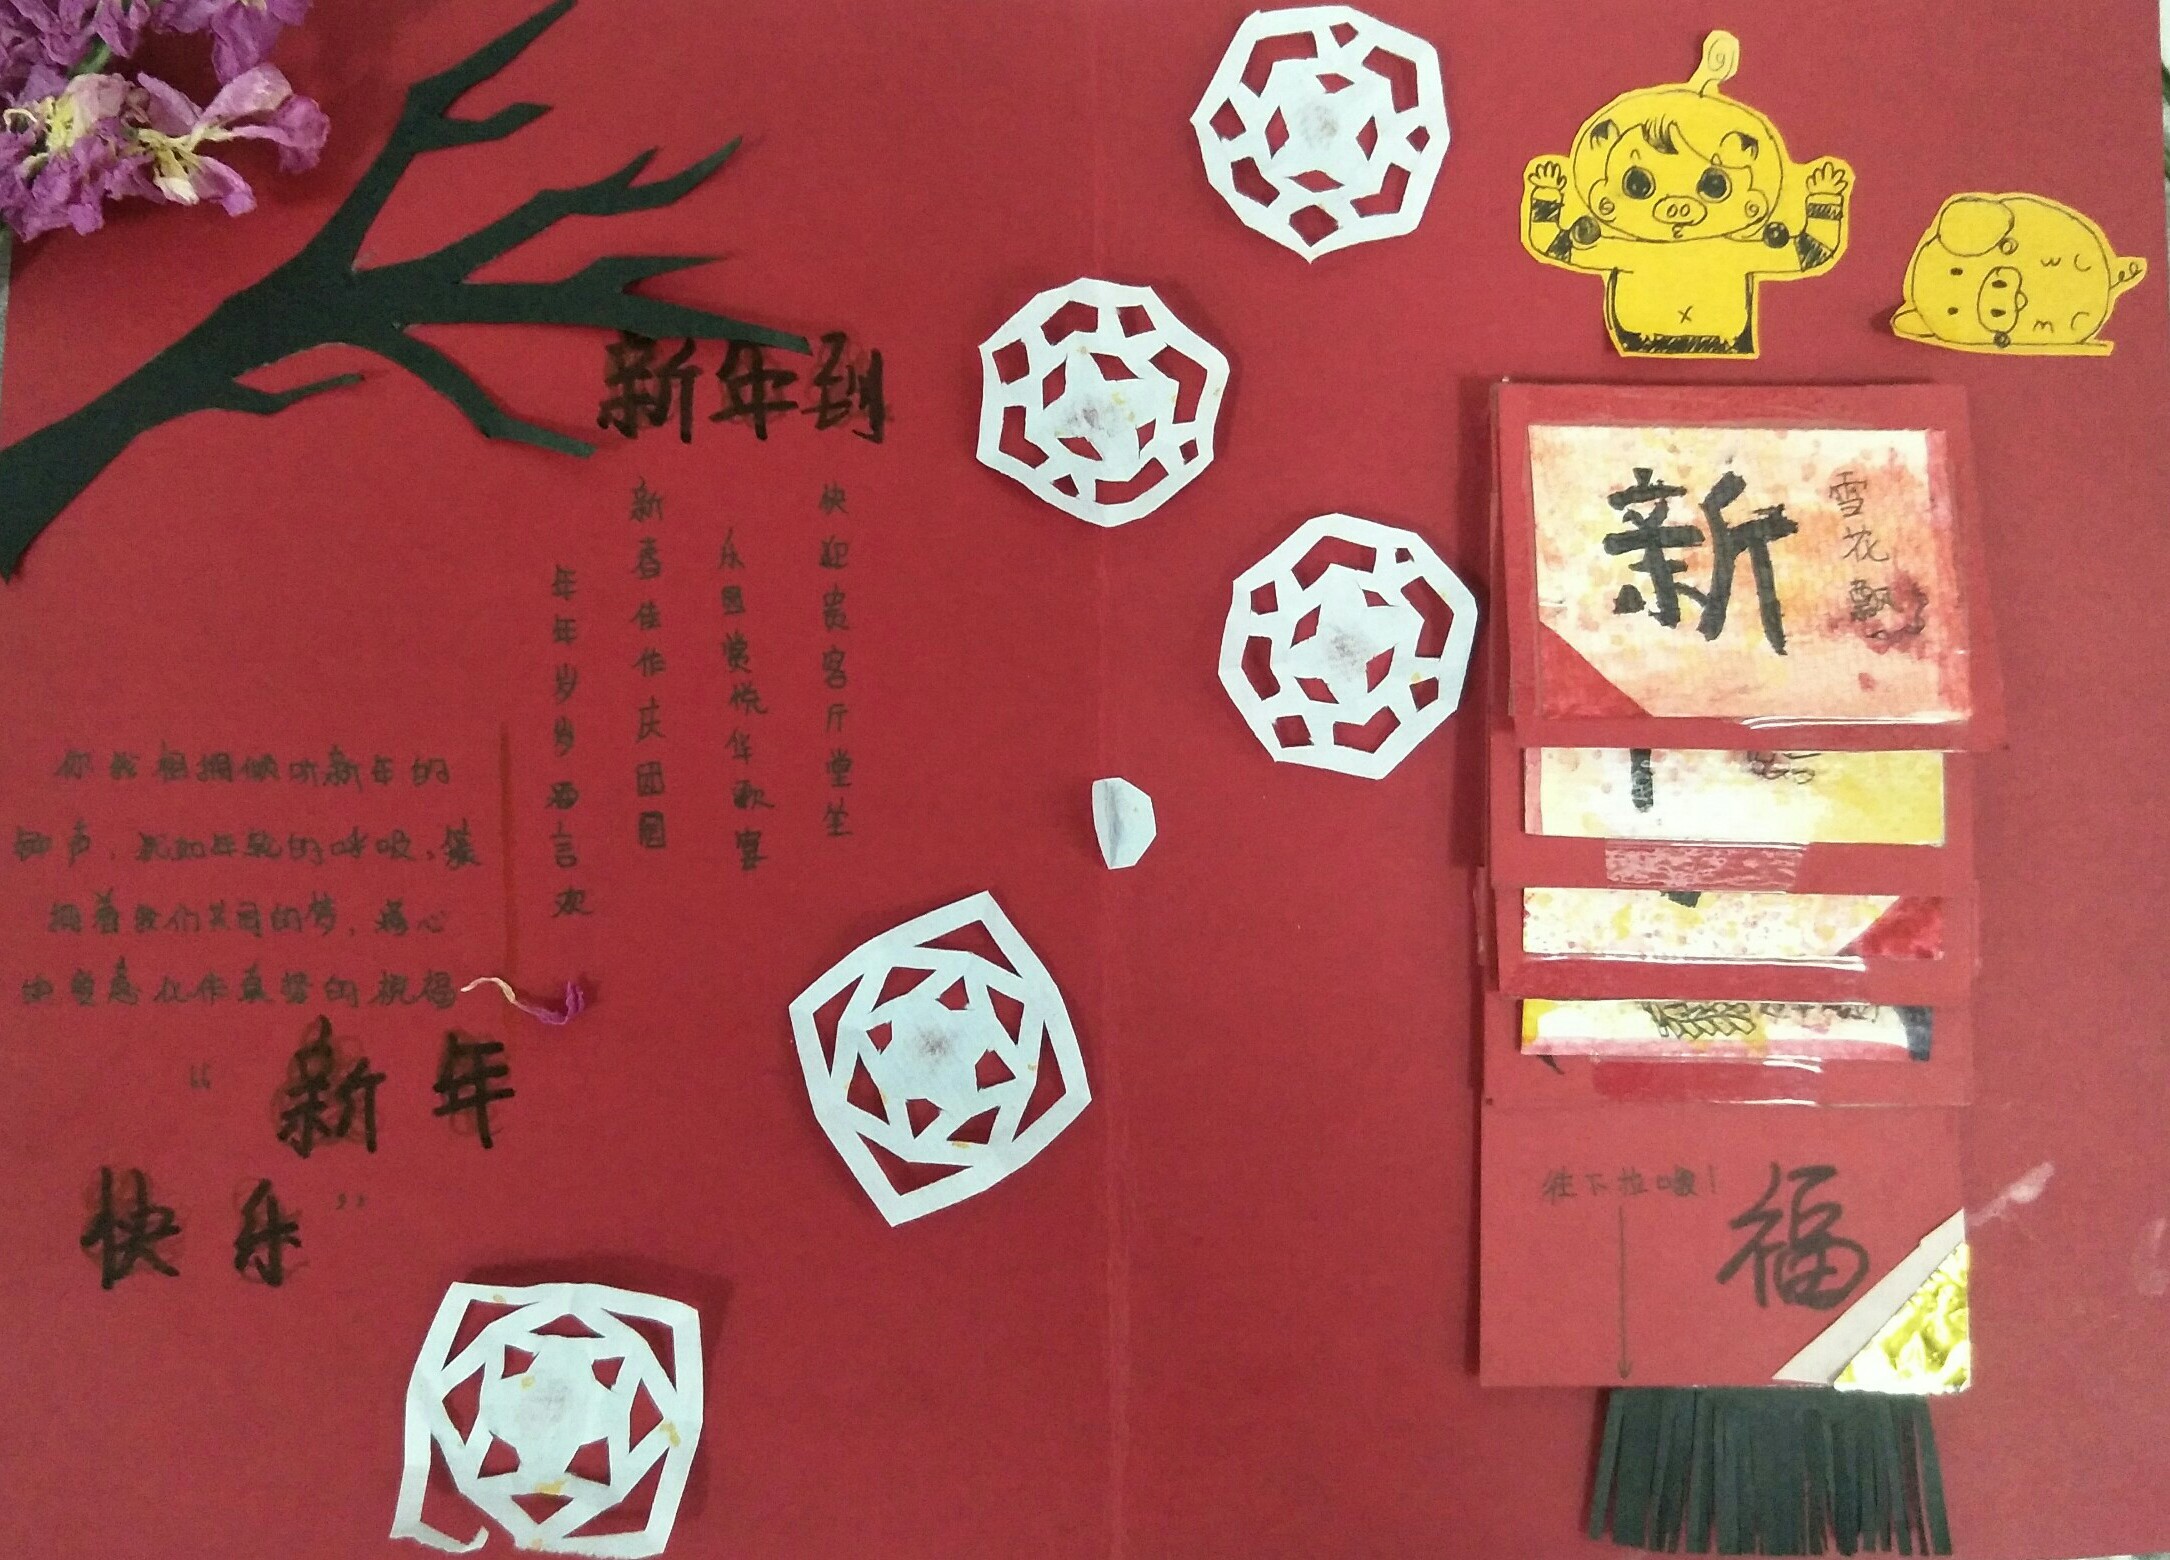 新年到
快迎贵客厅堂坐
乐园赏悦华歌宴
新春佳作庆团圆
年年岁岁言欢
你我相拥倾听新年的
钟声，犹如年轮的呼吸，簇
拥着我们共同的梦，满心
的爱意化作真挚的祝福
“新年
快乐”
新
雪花飘
往下拉哦！
福